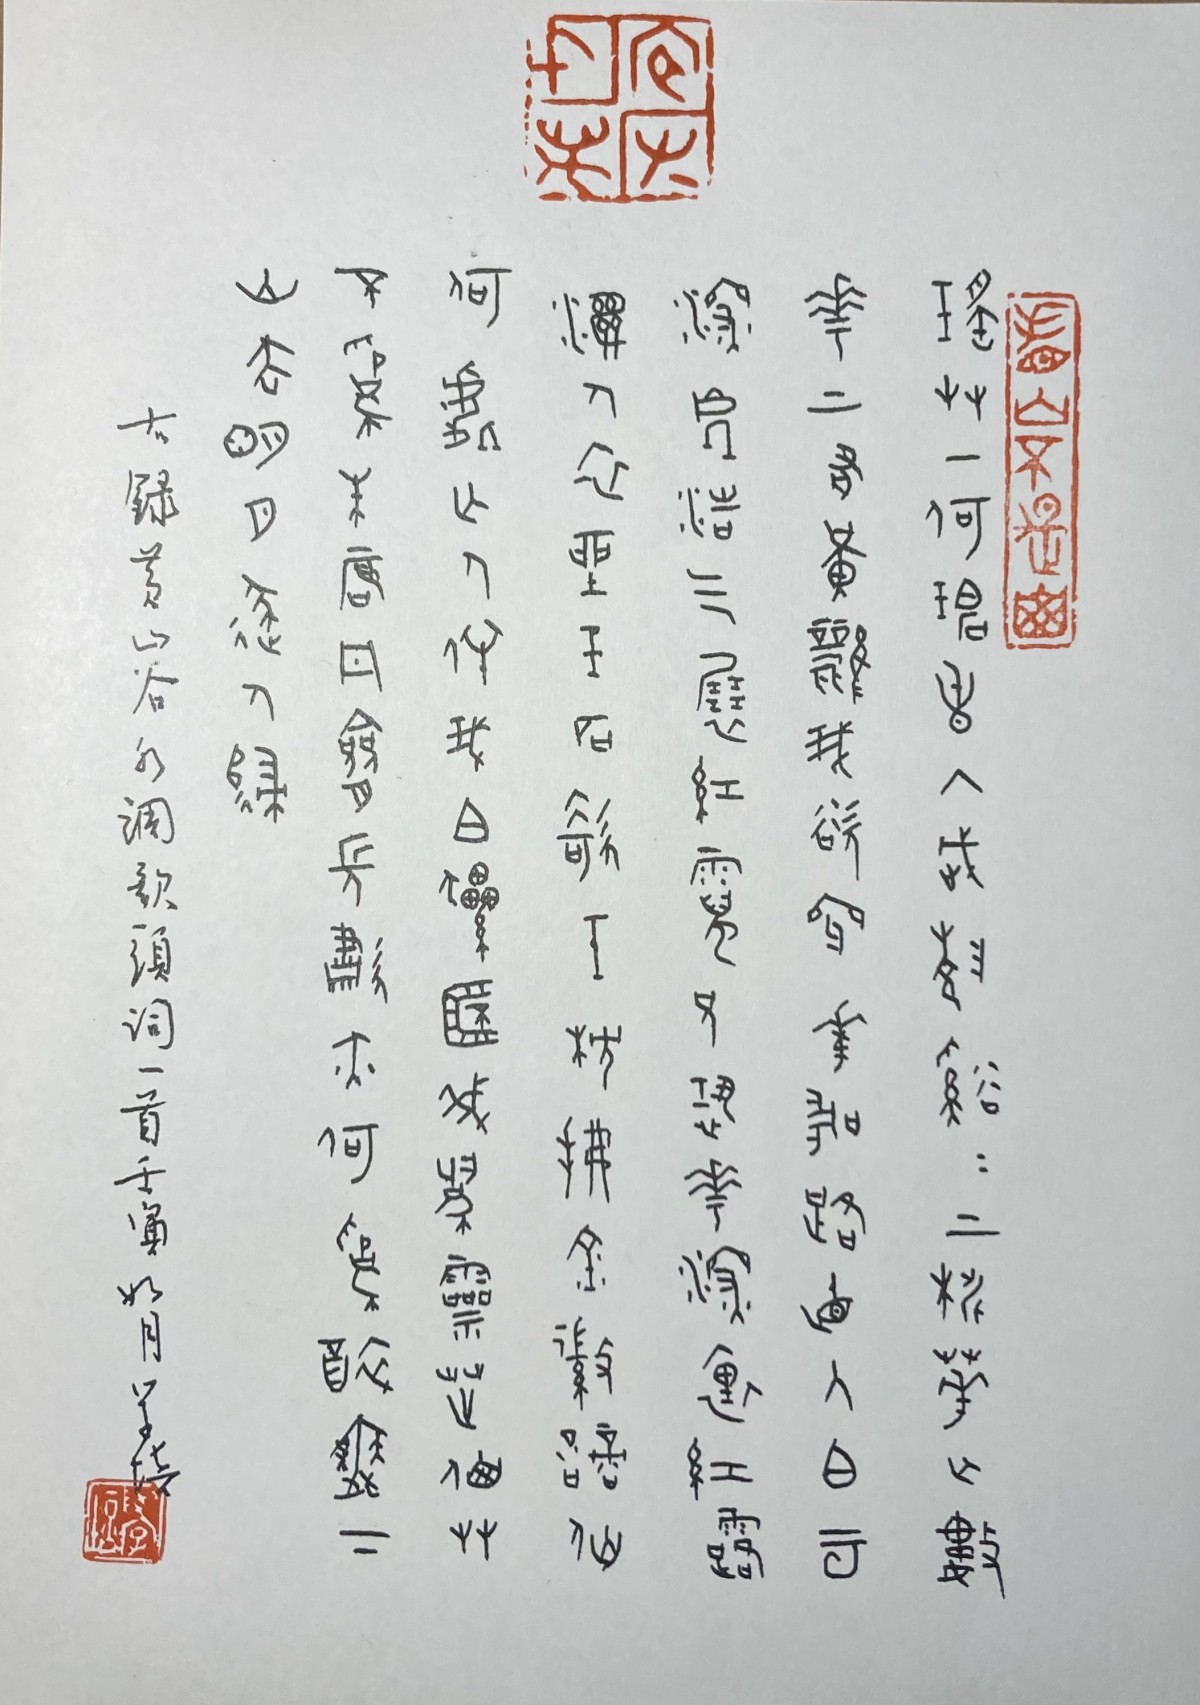 瑤艸一何碧春入武陵溪=上桃花無數
花上有黃鸝我欲穿花尋路直入白云
深處浩气展虹霓只恐花深裏紅露
濕人衣坐玉石欹玉枕拂金徽謫仙
何處無人伴我白螺杯我爲靈芝仙艸
不爲朱唇丹臉長嘯亦何爲醉舞下
山去明月逐人歸
古錄黃山谷水調歌頭詞一首壬寅如月